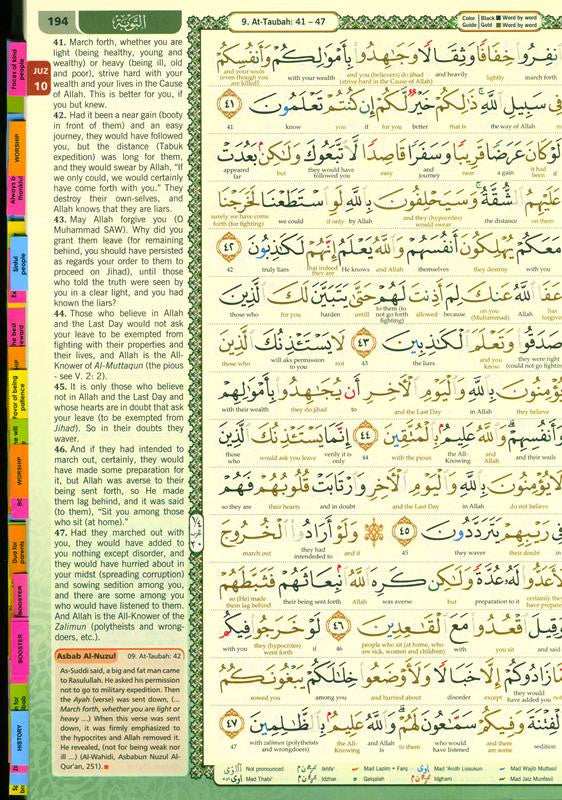 194
التوبة
9. At-Taubah: 41 – 47
Color Guide
Black ■ Word by word
Gold ■ Word by word
JUZ 10
41. March forth, whether you are
light (being healthy, young and
wealthy) or heavy (being ill, old
and poor), strive hard with your
wealth and your lives in the Cause
of Allah. This is better for you, if
you but knew.
42. Had it been a near gain (booty
in front of them) and an easy
journey, they would have followed
you, but the distance (Tabuk
expedition) was long for them,
and they would swear by Allah, "If
we only could, we would certainly
have come forth with you." They
destroy their own-selves, and
Allah knows that they are liars.
43. May Allah forgive you (O
Muhammad SAW). Why did you
grant them leave (for remaining
behind, you should have persisted
as regards your order to them to
proceed on Jihad), until those
who told the truth were seen by
you in a clear light, and you had
known the liars?
44. Those who believe in Allah
and the Last Day would not ask
your leave to be exempted from
fighting with their properties and
their lives, and Allah is the All-
Knower of Al-Muttaqun (the pious
- see V. 2: 2).
45. It is only those who believe
not in Allah and the Last Day and
whose hearts are in doubt that ask
your leave (to be exempted from
Jihad). So in their doubts they
waver.
46. And if they had intended to
march out, certainly, they would
have made some preparation for
it, but Allah was averse to their
being sent forth, so He made
them lag behind, and it was said
(to them), "Sit you among those
who sit (at home)."
47. Had they marched out with
you, they would have added to
you nothing except disorder, and
they would have hurried about in
your midst (spreading corruption)
and sowing sedition among you,
and there are some among you
who would have listened to them.
And Allah is the All-Knower of the
Zalimun (polytheists and wrong-
doers, etc.).
Asbab Al-Nuzul 09. At-Taubah: 42
As-Suddi said, a big and fat man came
to Rasulullah. He asked his permission
not to go to military expedition. Then
the Ayah (verse) was sent down, (...
March forth, whether you are light or
heavy ...) When this verse was sent
down, it was firmly emphasized to
the hypocrites and Allah removed it.
He revealed, (not for being weak nor
ill ...) (Al-Wahidi, Asbabun Nuzul Al-
Qur'an, 251).
انفروا خفافا وثقالا وجاهدوا بأموالكم وأنفسكم
march forth lightly and heavily and you (believers) do jihad (strive hard in the Cause of Allah) with your wealth and your souls (even though you are killed)
في سبيل الله ذلكم خير لكم إن كنتم تعلمون ٤١
the way of Allah that is better for you if you know 41
لو كان عرضا قريبا وسفرا قاصدا لاتبعوك ولكن بعدت
if it had been a gain near and journey easy they would have followed you but appeared far
عليهم الشقة وسيحلفون بالله لو استطعنا لخرجنا
on them the distance and they (hypocrites) would swear by Allah if only we could surely we come forth (for fighting)
معكم يهلكون أنفسهم والله يعلم إنهم لكاذبون ٤٢
with you they destroy themselves and Allah He knows that indeed they are truly liars 42
عفا الله عنك لم أذنت لهم حتى يتبين لك الذين
has forgiven Allah on you (Muhammad) because allowed to them (to not go forth fighting) until harden for you those who
صدقوا وتعلم الكاذبين ٤٣ لا يستأذنك الذين
they were right (could not go fighting) the liars 43 not will aks permission to you those who
يؤمنون بالله واليوم الآخر أن يجاهدوا بأموالهم
they believe in Allah and the Last Day to they do jihad with their wealth
وأنفسهم والله عليم بالمتقين ٤٤ إنما يستأذنك الذين
and their souls and Allah the All-Knowing with the pious 44 verily it is only would ask you leave those who
لا يؤمنون بالله واليوم الآخر وارتابت قلوبهم فهم
do not believe in Allah and the Last Day and in doubt their hearts so they are
في ريبهم يترددون ٤٥ ولو أرادوا الخروج
in their doubt they waver 45 and if they had intended to march out
لأعدوا له عدة ولكن كره الله انبعاثهم فثبطهم
certainly they have prepared preparation to it but was averse Allah their being sent forth so (He) made them lag behind
وقيل اقعدوا مع القاعدين ٤٦ لو خرجوا فيكم
and said you sit with people who sit (at home, who are sick, women and children) 46 if they (hypocrites) went forth with you
ما زادوكم إلا خبالا ولأوضعوا خلالكم يبغونكم
they would have added you not except disorder and hurried about among you sowed you
الفتنة وفيكم سماعون لهم والله عليم بالظالمين ٤٧
sedition and there are some who would have listened to them and Allah the All-Knowing with zalimin (polytheists and wrongdoers) 47
Not pronounced
Ikhfa'
Mad Lazim • Farq
Mad 'Aridh Lissukun
Mad Wajib Muttasil
Mad Thabi'
Idzhar
Qalqalah
Idgham
Mad Jaiz Munfasil
Faces of kind people
WORSHIP
Always b thankful
Sinful people
the best reward
Favor of being patience
WORSHIP
Dua for parents
BOOSTER
BOOSTER
HISTORY